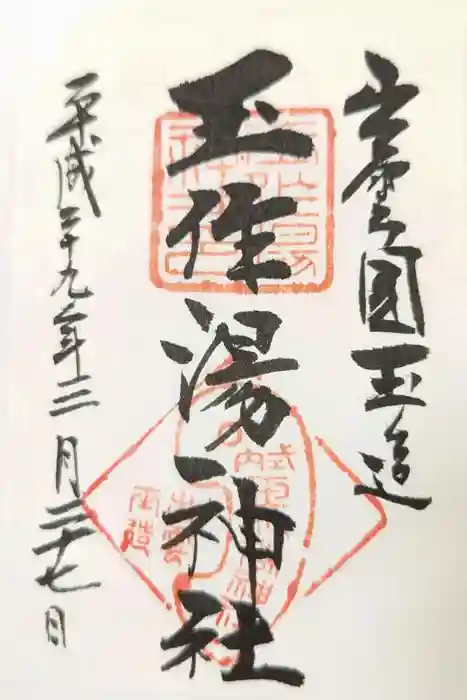 出雲國玉造
玉作湯神社
平成二十九年三月二十七日
式内
出雲
玉造